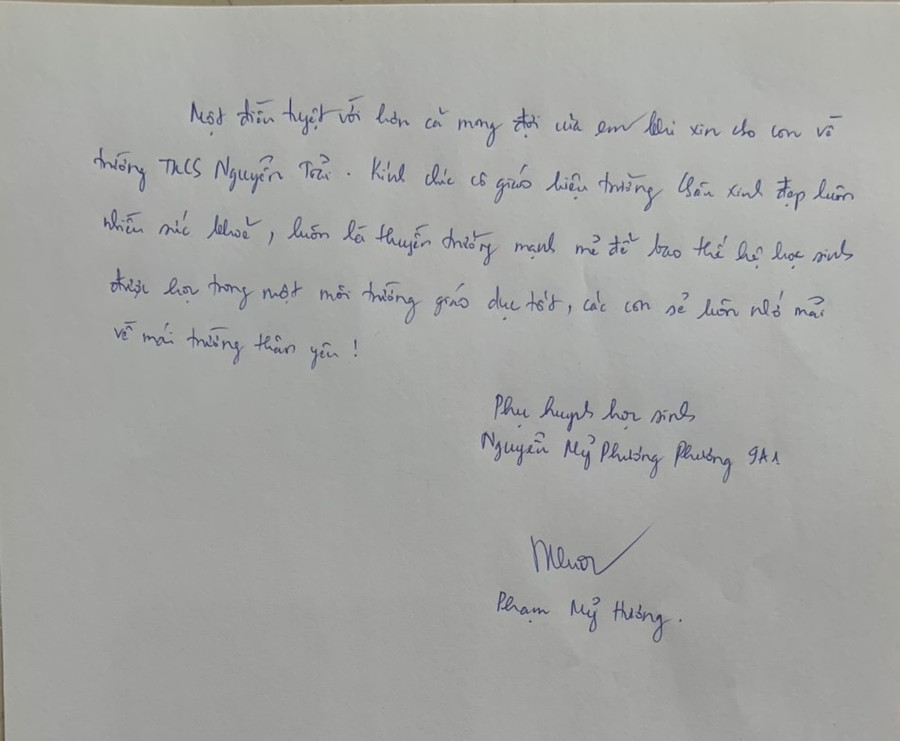 Một điều tuyệt vời hơn cả mong đợi của em khi xin cho con về
trường THCS Nguyễn Trãi. Kính chúc cô giáo hiệu trưởng thân xinh đẹp luôn
nhiều sức khoẻ, luôn là thuyền trưởng mạnh mẽ để bao thế hệ học sinh
được học trong một môi trường giáo dục tốt, các con sẽ luôn nhớ mãi
về mái trường thân yêu!
Phụ huynh học sinh
Nguyễn Mỹ Phương Phương 9A1
Phạm Mỹ Hương.